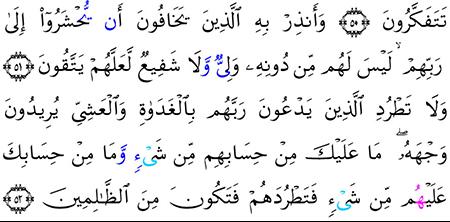 تَتَفَكَّرُونَ ۝٥٠ وَأَنذِرْ بِهِ ٱلَّذِينَ يَخَافُونَ أَن يُحْشَرُوٓا۟ إِلَىٰ
رَبِّهِمْ ۙ لَيْسَ لَهُم مِّن دُونِهِۦ وَلِىٌّ وَلَا شَفِيعٌ لَّعَلَّهُمْ يَتَّقُونَ ۝٥١
وَلَا تَطْرُدِ ٱلَّذِينَ يَدْعُونَ رَبَّهُم بِٱلْغَدَوٰةِ وَٱلْعَشِىِّ يُرِيدُونَ
وَجْهَهُۥ ۖ مَا عَلَيْكَ مِنْ حِسَابِهِم مِّن شَىْءٍ وَمَا مِنْ حِسَابِكَ
عَلَيْهُم مِّن شَىْءٍ فَتَطْرُدَهُمْ فَتَكُونَ مِنَ ٱلظَّـٰلِمِينَ ۝٥٢